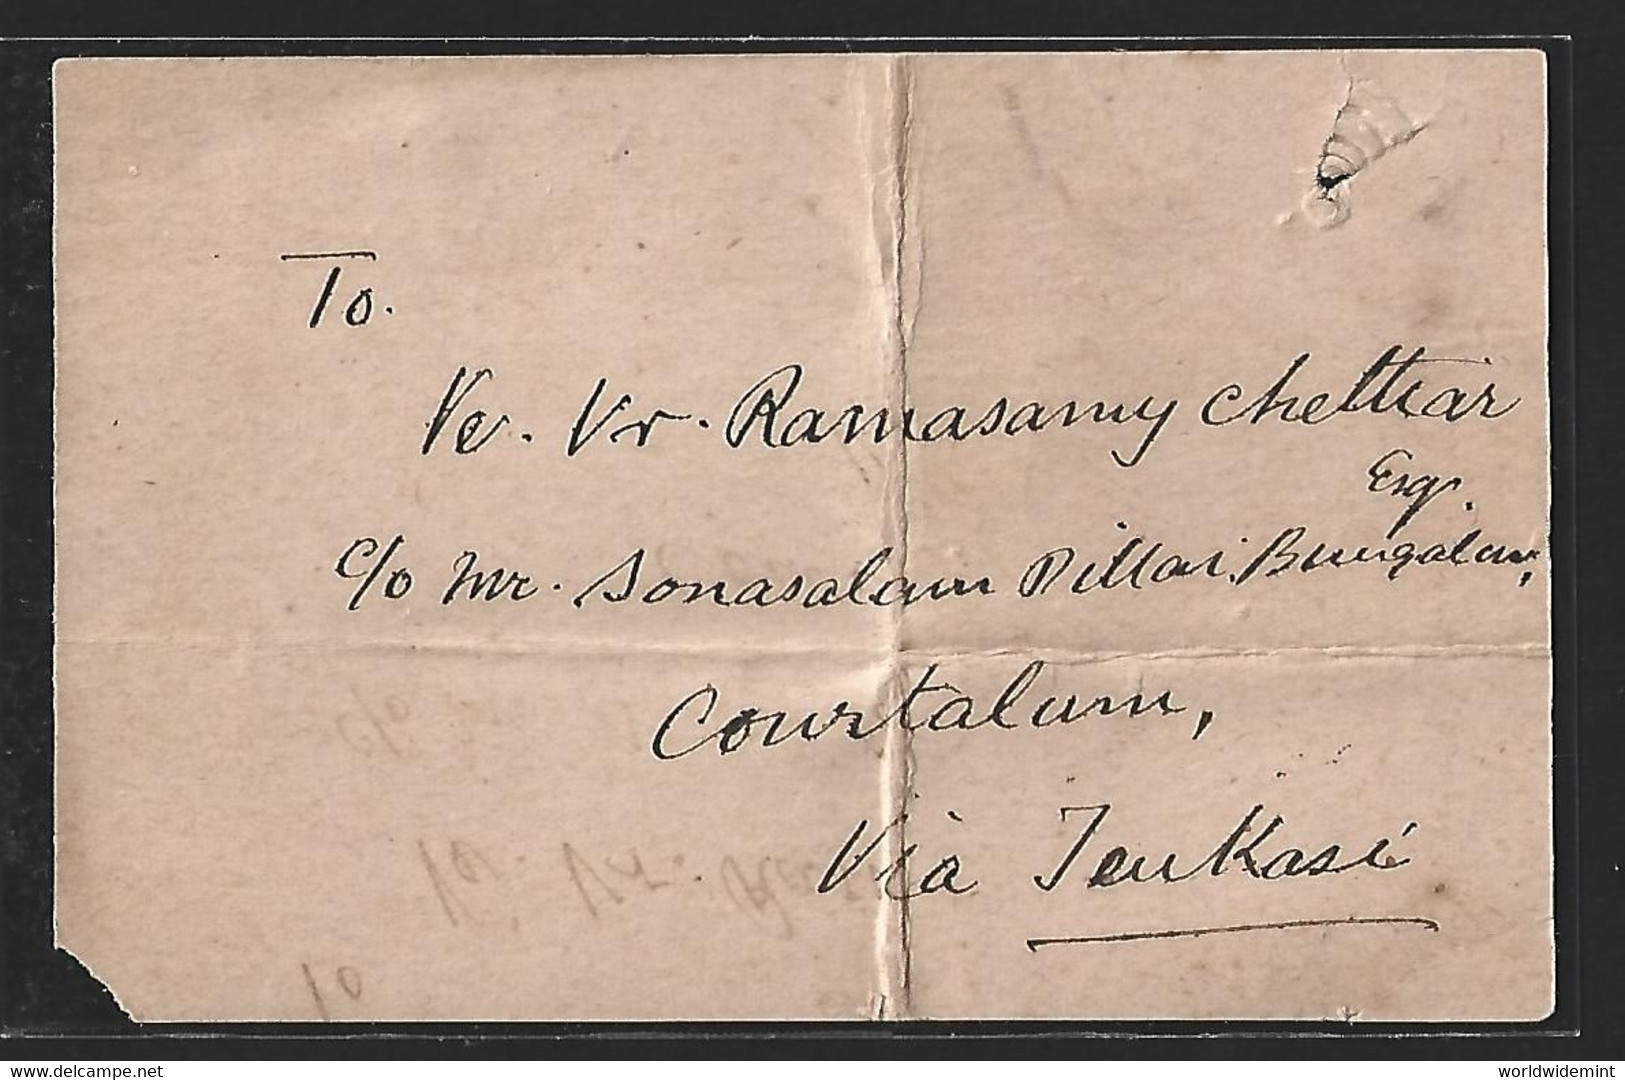 To.
Ve. Vr. Ramasamy Chettiar
Esqr.
C/o Mr. Sonasalam Pillai Bungalow,
Courtalum,
Via Tenkasi
To
Ve. Vr.
C/o
www.delcampe.net
worldwidemint